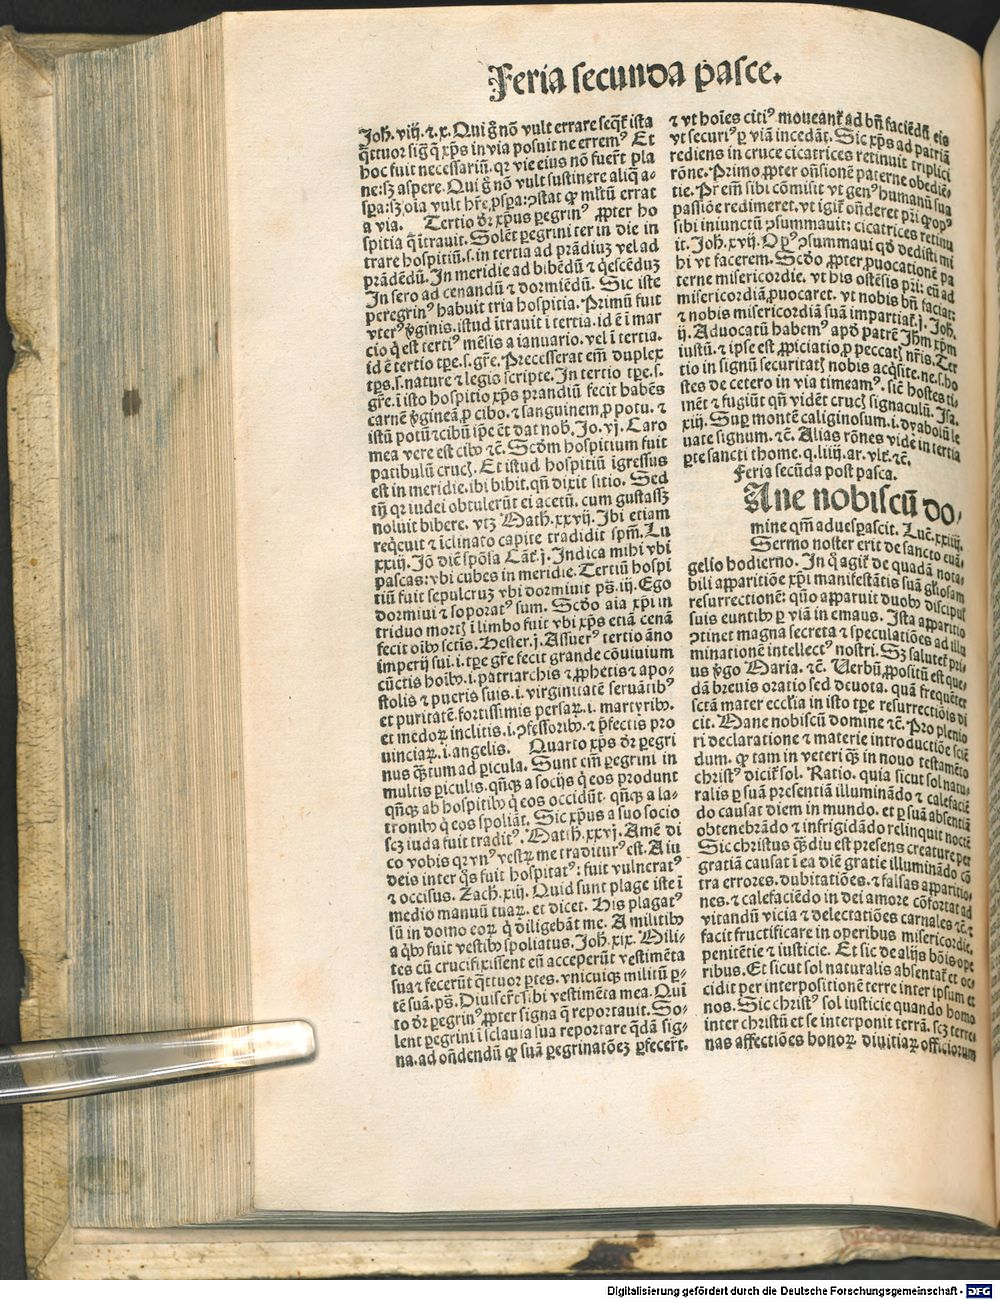 Feria secunda pasce.
Joh. viij. ⁊.x. Qui g̃ nõ vult errare seq̃t̃ ista
q̃ttuor sig̃ q̃ xp̃s in via posuit ne errem⁹ Et
hoc fuit necessariũ. qr vie eius nõ fuer̃t pla
ne: sꝫ aspere. Qui g̃ nõ vult sustinere aliq̃ a-
sp̃a: sꝫ oĩa vult hr̃e ꝓsp̃a: ꝯstat ꝙ ml̃tũ errat
a via. Tertio dr̃ xp̃us ꝑegrin⁹ ꝓpter ho
spitia q̃ ĩtrauit. Solẽt ꝑegrini ter in die in
trare hospitiũ. s. in tertia ad prãdiuꝫ vel ad
prãdẽdũ. In meridie ad bibẽdũ ⁊ q̃escẽduꝫ
In sero ad cenandũ ⁊ dormiẽdũ. Sic iste
peregrin⁹ habuit tria hospitia. Primũ fuit
vter⁹ ꝟginis. istud ĩtrauit ĩ tertia. id ẽ ĩ mar
cio q̃ est terti⁹ mẽsis a ianuario. vel ĩ tertia.
id ẽ tertio tp̃e. s. gr̃e. Precesserat em̃ duplex
tp̃s. s. nature ⁊ legis scripte. In tertio tp̃e. s.
gr̃e. ĩ isto hospitio xp̃s prandiũ fecit habẽs
carnẽ ꝟgineã ꝓ cibo. ⁊ sanguinem ꝓ potu. ⁊
istũ potũ ⁊ cibũ ip̃e ẽt dat nob̃. Jo. vj. Caro
mea vere est cibꝰ ⁊c̃. Scd̃m hospitium fuit
patibulũ crucꝭ. Et istud hospitiũ igressus
est in meridie. ibi bibit. qñ dixit sitio. Sed
tñ qr iudei obtulerũt ei acetũ. cum gustassꝫ
noluit bibere. vtꝫ Math. xxvij. Ibi etiam
req̃euit ⁊ ĩclinato capite tradidit sp̃m. Lu
xxiij. Jõ diẽ sp̃õsa Cãt̃. j. Indica mihi vbi
pascas: vbi cubes in meridie. Tertiũ hospi
tiũ fuit sepulcruꝫ vbi dormiuit ps̃. iij. Ego
dormiui ⁊ soporat⁹ sum. Scd̃o aĩa xp̃i in
triduo mortꝭ ĩ limbo fuit vbi xp̃s etiã cenã
fecit oĩbꝰ sctĩs. Hester. j. Assuer⁹ tertio ãno
imperij sui. i. tp̃e gr̃e fecit grande cõuiuium
cũctis hoĩbꝰ. i. patriarchis ⁊ ꝓphetis ⁊ apo-
stolis ⁊ pueris suis. i. virginitatẽ seruãtib⁹
et puritatẽ. fortissimis persaꝝ. i. martyribꝰ.
et medoꝝ inclitis. i. ꝯfessoribꝰ. ⁊ p̃fectis pro
uinciaꝝ. i. angelis. Quarto xp̃s dr̃ ꝑegri
nus q̃ꝫtum ad ꝑicula. Sunt em̃ ꝑegrini in
multis ꝑiculis. qñqꝫ a socijs q̃ eos produnt
qñqꝫ ab hospitibꝰ q̃ eos occidũt. qñqꝫ a la-
tronibꝰ q̃ eos spoliãt. Sic xp̃us a suo socio
scꝫ iuda fuit tradit⁹. Math. xxvj. Amẽ di
co vobis qr vn⁹ vestꝝ me traditur⁹ est. A iu
deis inter q̃s fuit hospitat⁹: fuit vulnerat⁹
⁊ occisus. Zach. xiij. Quid sunt plage iste ĩ
medio manuũ tuaꝝ. et dicet. His plagat⁹
sũ in domo eoꝝ q̃ diligebãt me. A militibꝰ
a q̃bꝰ fuit vestibꝰ spoliatus. Joh. xix. Mili-
tes cũ crucifixissent eũ acceperũt vestimẽta
sua ⁊ fecerũt q̃ttuor ꝑtes. vnicuiqꝫ militũ ꝑ-
tẽ suã. ps̃. Diuiser̃t sibi vestimẽta mea. Qui
to dr̃ ꝑegrin⁹ ꝓpter signa q̃ reportauit. So-
lent ꝑegrini ĩ sclauia sua reportare q̃dã sig-
na. ad oñdendũ ꝙ suã ꝑegrinatõeꝫ ꝑfecer̃t.
⁊ vt hoĩes citi⁹ moueant̃ ad bñ faciẽdũ eis
vt securi⁹ ꝑ viã incedãt. Sic xp̃s ad patriã
rediens in cruce cicatrices retinuit triplici
rõne. Primo ꝓpter oñsionẽ paterne obediẽ-
tie. Pr̃ em̃ sibi cõmisit vt gen⁹ humanũ sua
passiõe redimeret. vt igit̃ oñderet pr̃i ꝙ op⁹
sibi iniunctũ ꝯsummauit: cicatrices retinu
it. Joh. xvij. Op⁹ ꝯsummaui qd̃ dedisti mi
hi vt facerem. Scd̃o ꝓpter ꝓuocationẽ pa
terne misericordie. vt his ostẽsis pr̃i: eũ ad
misericordiã ꝓuocaret. vt nobis bñ faciat:
⁊ nobis misericordiã suã impartiat̃. j. Joh.
ij. Aduocatũ habem⁹ apd̃ patrẽ Jhm̃ xp̃m
iustũ. ⁊ ipse est ꝓpiciatio ꝓ peccatꝭ nr̃is. Ter
tio in signũ securitatꝭ nobis acq̃site. ne. s. ho
stes de cetero in via timeam⁹. siẽ hostes ti-
mẽt ⁊ fugiũt qñ vidẽt crucꝭ signaculũ. Isa.
xiij. Suꝑ montẽ caliginosum. i. dyabolũ le
uate signum. ⁊c̃. Alias rõnes vide in tertia
ꝑte sancti thome. q. liiij. ar. vlt̃. ⁊c̃.
Feria secũda post pasca.
Ane nobiscũ do-
mine qm̃ aduesꝑascit. Luc̃. xxiiij.
Sermo noster erit de sancto euã-
gelio hodierno. In q̃ agit̃ de quadã nota-
bili apparitiõe xp̃i manifestãtis suã gl̃osam
resurrectionẽ: quõ apparuit duobꝰ discipul̃
suis euntibꝰ ꝑ viã in emaus. Ista apparitio
ꝯtinet magna secreta ⁊ speculatiões ad illu
minationẽ intellect⁹ nostri. Sꝫ salutet̃ pri-
us ꝟgo Maria. ⁊c̃. Uerbũ ꝓpositũ est que-
dã breuis oratio sed deuota. quã frequẽter
sctã mater eccl̃ia in isto tp̃e resurrectiõis di
cit. Mane nobiscũ domine ⁊c̃. Pro plenio
ri declaratione ⁊ materie introductiõe sciẽ
dum. ꝙ tam in veteri q̃ꝫ in nouo testamẽto
christ⁹ dicit̃ sol. Ratio. quia sicut sol natu-
ralis ꝑ suã presentiã illuminãdo ⁊ calefaciẽ
do causat diem in mundo. et ꝑ suã absentiã
obtenebrãdo ⁊ infrigidãdo relinquit noctẽ
Sic christus q̃ꝫdiu est presens creature per
gratiã causat ĩ ea diẽ gratie illuminãdo cõ
tra errores. dubitatiões. ⁊ falsas apparitio-
nes. ⁊ calefaciẽdo in dei amore cõfortat ad
vitandũ vicia ⁊ delectatiões carnales ⁊c̃. ⁊
facit fructificare in operibus misericordie.
penitẽtie ⁊ iusticie. Et sic de alijs bõis ope
ribus. Et sicut sol naturalis absentat̃ et oc-
cidit per interpositionẽ terre inter ipsum et
nos. Sic christ⁹ sol iusticie quando homo
inter christũ et se interponit terrã. scꝫ terre-
nas affectiões honoꝝ diuitiaꝝ officiorum
Digitalisierung gefördert durch die Deutsche Forschungsgemeinschaft - DFG